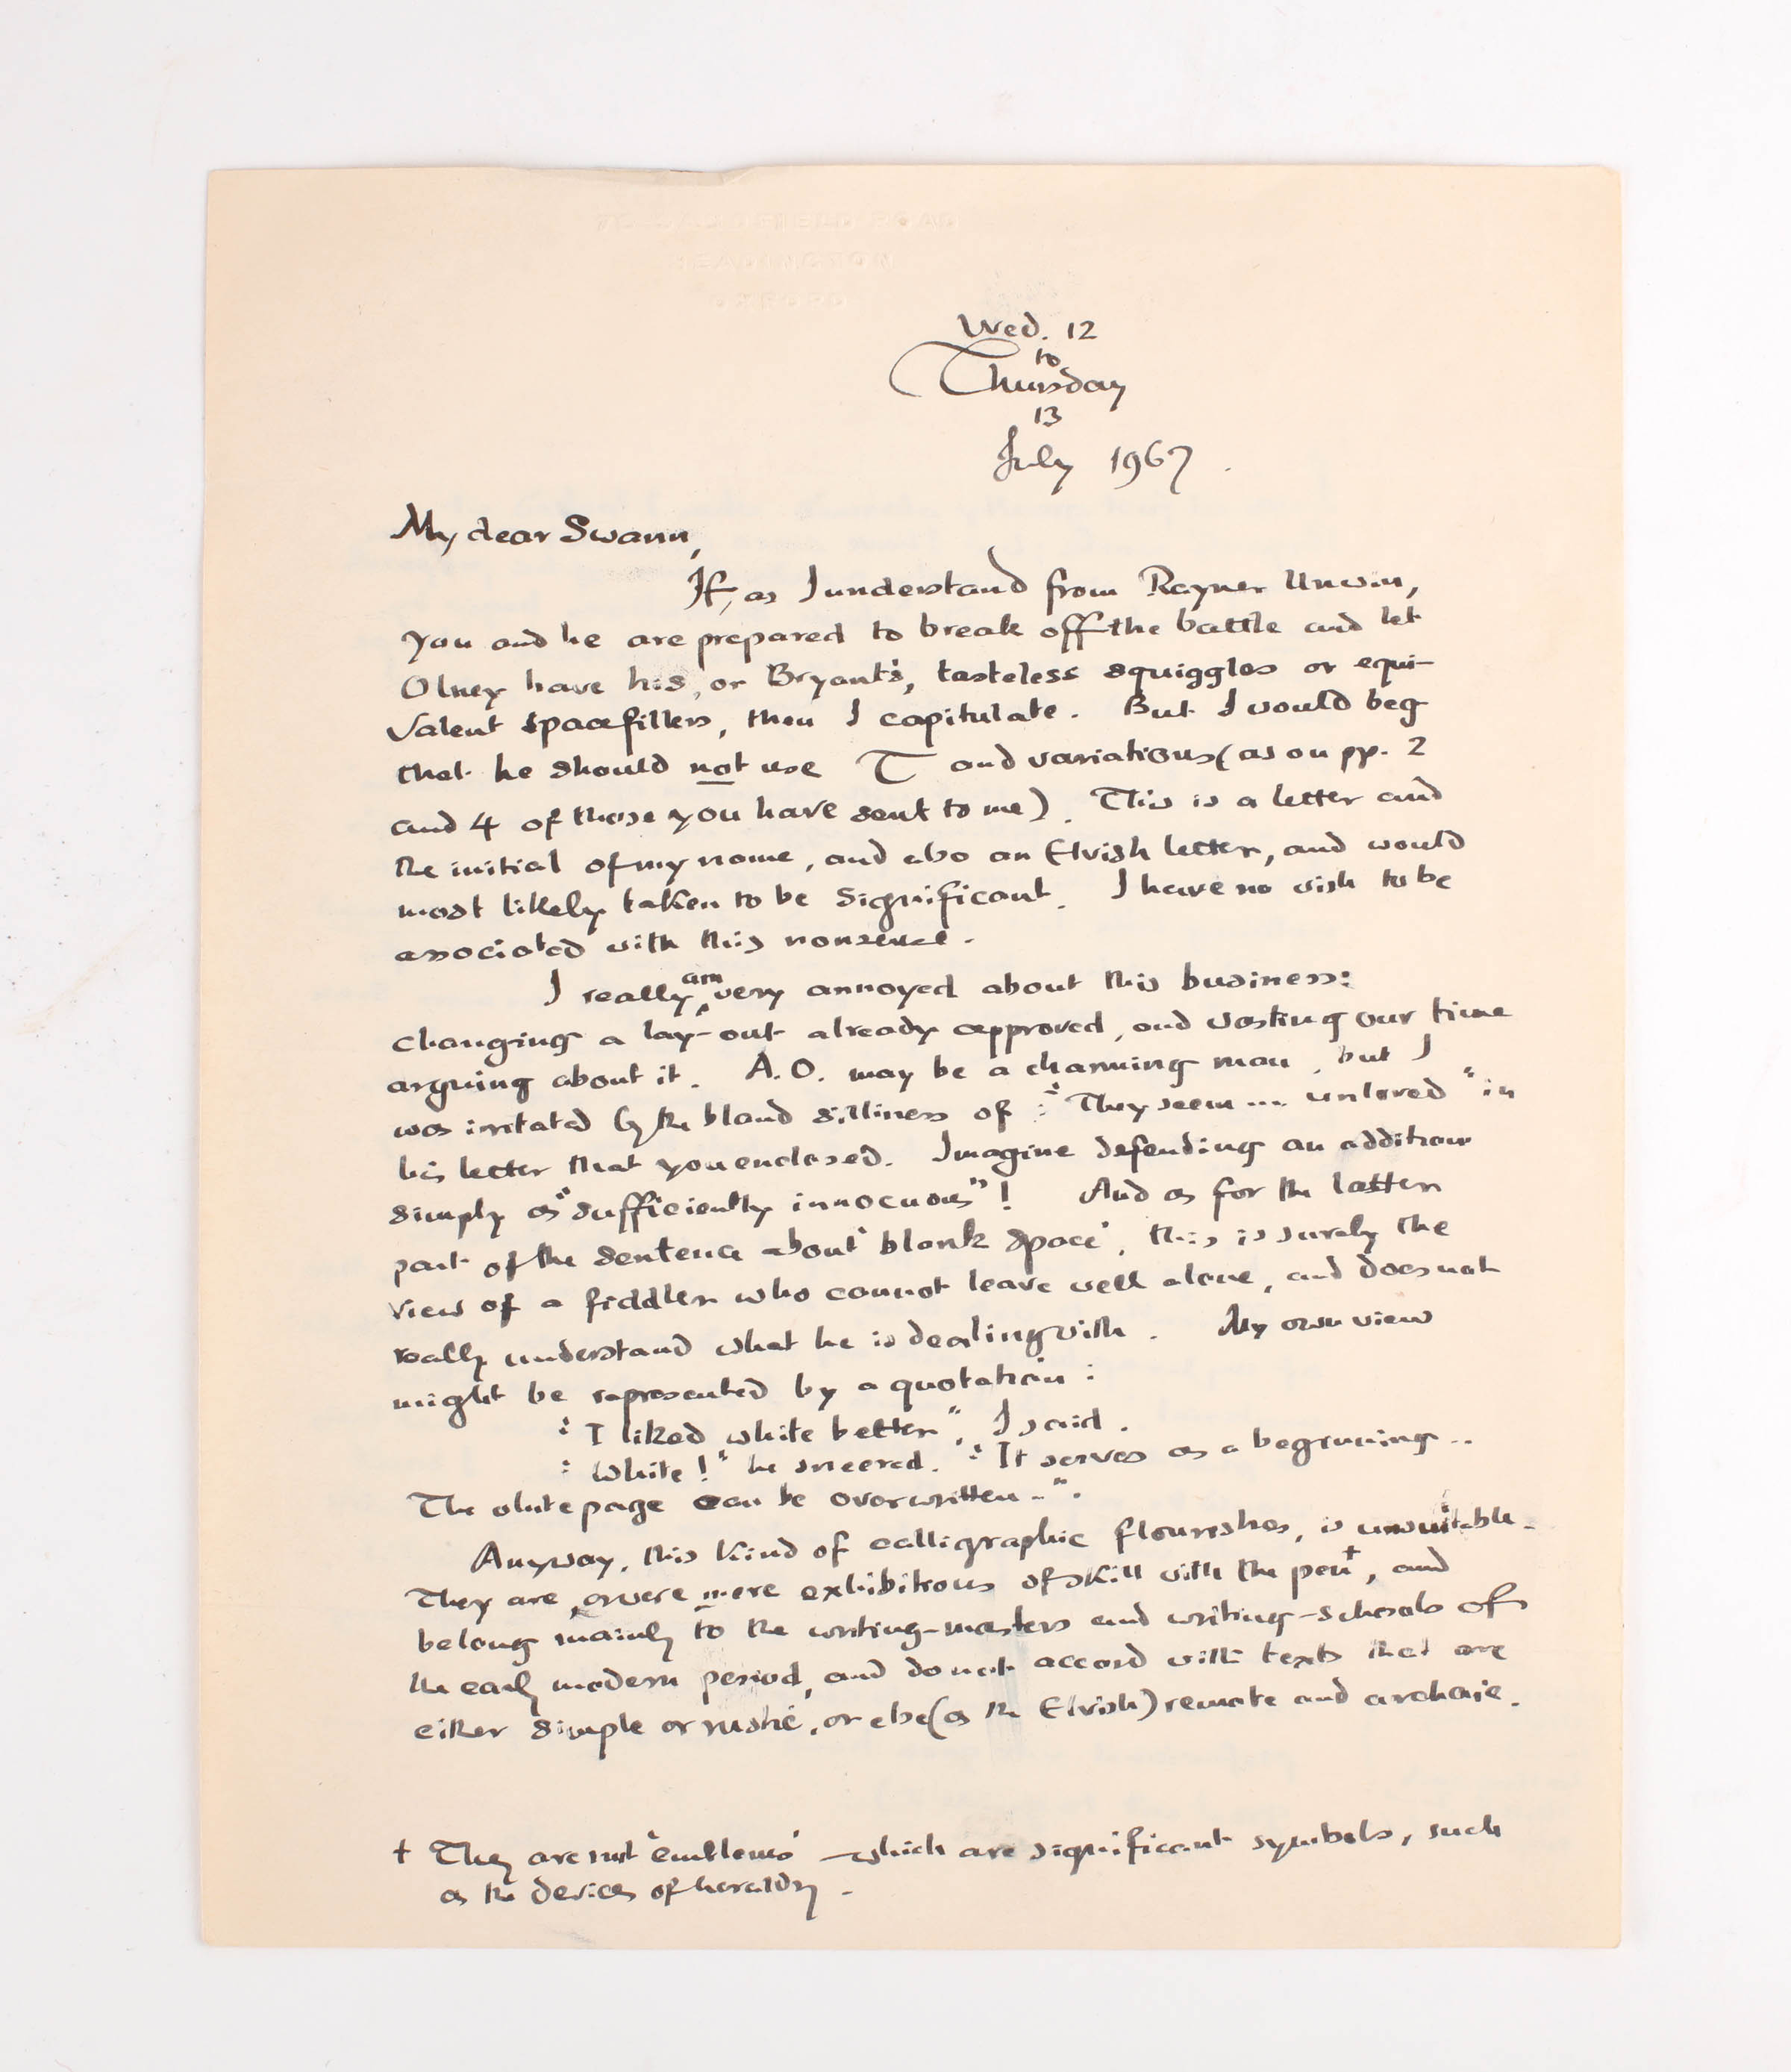 76 SANDFIELD ROAD
HEADINGTON
OXFORD
Wed. 12
to
Thursday
13
July 1967.
My dear Swann,
If, as I understand from Rayner Unwin,
you and he are prepared to break off the battle and let
Olney have his, or Bryant's, tasteless squiggles or equi-
valent spacefillers, then I capitulate. But I would beg
that he should not use T and variations (as on pp. 2
and 4 of those you have sent to me). This is a letter and
the initial of my name, and also an Elvish letter, and would
most likely taken to be significant. I have no wish to be
associated with this nonsense.
I really am very annoyed about this business:
changing a lay-out already approved, and wasting our time
arguing about it. A.O. may be a charming man, but I
was irritated by the bland silliness of: "They seem ... unloved" in
his letter that you enclosed. Imagine defending an addition
simply as "sufficiently innocuous"! And as for the latter
part of the sentence about 'blank space', this is surely the
view of a fiddler who cannot leave well alone, and does not
really understand what he is dealing with. My own view
might be represented by a quotation:
"I liked white better", I said.
"White!" he sneered. "It serves as a beginning..
The white page can be overwritten..".
Anyway, this kind of calligraphic flourishes, is unsuitable.
They are, or were mere exhibitions of skill with the pen†, and
belong mainly to the writing-masters and writing-schools of
the early modern period, and do not accord with texts that are
either simple or rustic, or else (as the Elvish) remote and archaic.
† They are not 'emblems' – which are significant symbols, such
as the devices of heraldry.